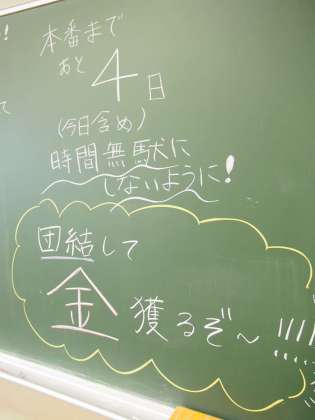 本番まで
あと4日
(今日含め)
時間無駄に
しないように!
団結して
金獲るぞ～!!!!